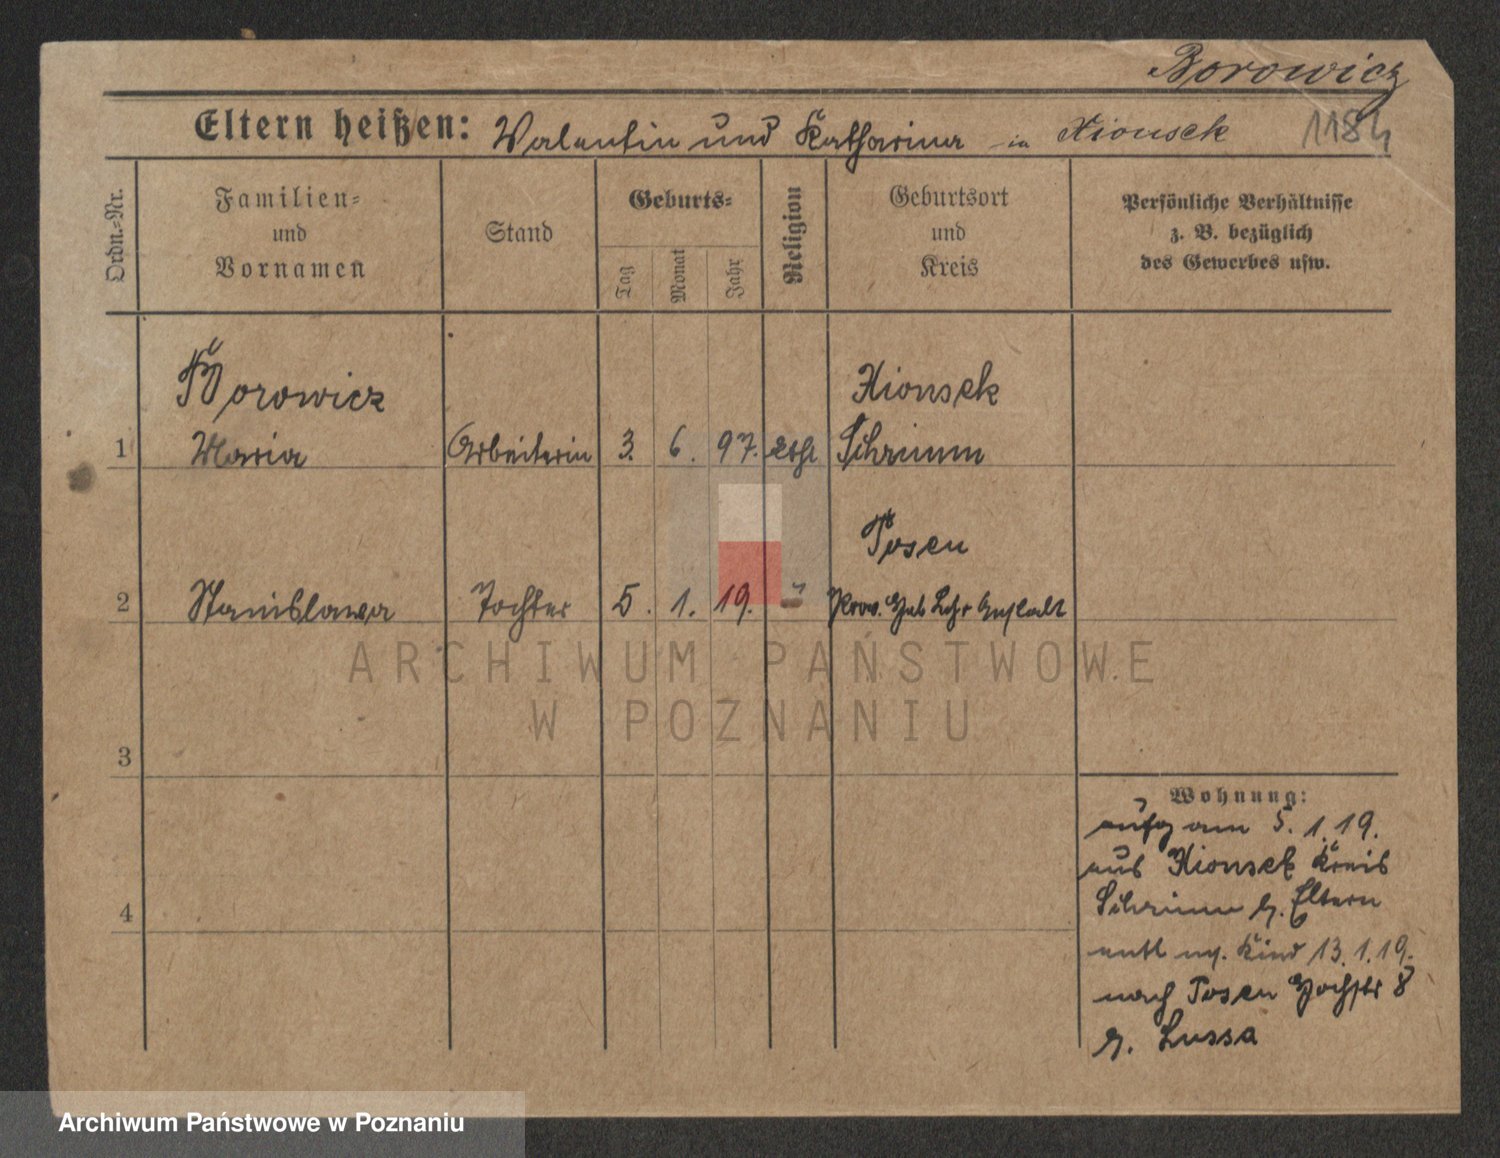 Borowicz
Eltern heißen: Valentin und Katharina in Xionsek 1184
Ordn.-Nr.
Familien-
und
Vornamen
Stand
Geburts-
Tag
Monat
Jahr
Religion
Geburtsort
und
Kreis
Persönliche Verhältnisse
z. B. bezüglich
des Gewerbes usw.
Borowicz Xionsek
1 Maria Arbeiterin 3. 6. 97. kth Schrimm
Posen
2 Stanislawa Tochter 5. 1. 19. " Prov. Heb Lehr Anstalt
3
4
Wohnung:
aufg am 5. 1. 19.
aus Xionsek Kreis
Schrimm b. Eltern
entl m. Kind 13. 1. 19.
nach Posen Hochstr 8
b. Lussa
ARCHIWUM PAŃSTWOWE
W POZNANIU
Archiwum Państwowe w Poznaniu